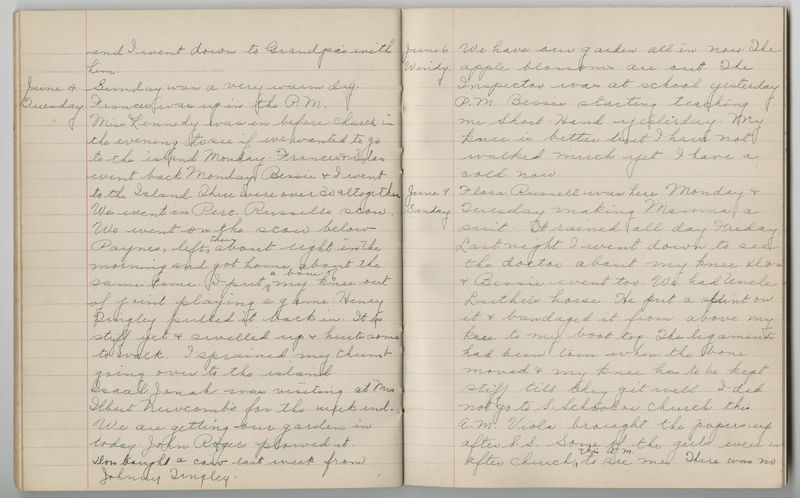 and I went down to Grandpa's with
him.
June 4 Sunday was a very warm day.
Tuesday Frances was up in the P.M.
Miss Kennedy was in before church in
the evening to see if we wanted to go
to the island Monday. Frances &
went back Monday. Bessie & I went
to the Island. There were over 30 altogether
We went in Perc. Russell's scow.
We went on the scow below
Paynes, left there about eight in the
morning and got home about the
same time. I put a bone of my knee out
of joint playing a game. Henry
Tingley pulled it back in. It is
stiff yet & swelled up & hurts some
to walk. I sprained my thumb
going over to the island
Isaac Jonah was visiting at Mrs
Ilbert Newcombs for the week end.
We are getting our garden in
today John Roger plowed it.
Don bought a cow last week from
Johnny Tingley.
June 6 We have our garden all in now. The
Windy apple blossoms are out. The
Inspector was at school yesterday
P.M. Bessie starting teaching
me Short Hand yesterday. My
knee is better but I have not
walked much yet I have a
cold now.
June 9 Flora Russell was here Monday &
Sunday Tuesday making Mamma a
suit. It rained all day Friday.
Last night I went down to see
the doctor about my knee Don
& Bessie went too. We had Uncle
Luther's horse. He put a splint on
it & bandaged it from above my
knee to my boot top. The ligaments
had been torn when the bone
moved & my knee has to be kept
stiff till they git well I did
not go to S. School or church this
A.M. Viola brought the papers up
after S.S. Some of the girls were in
after church, this A.M. to see me. There was no